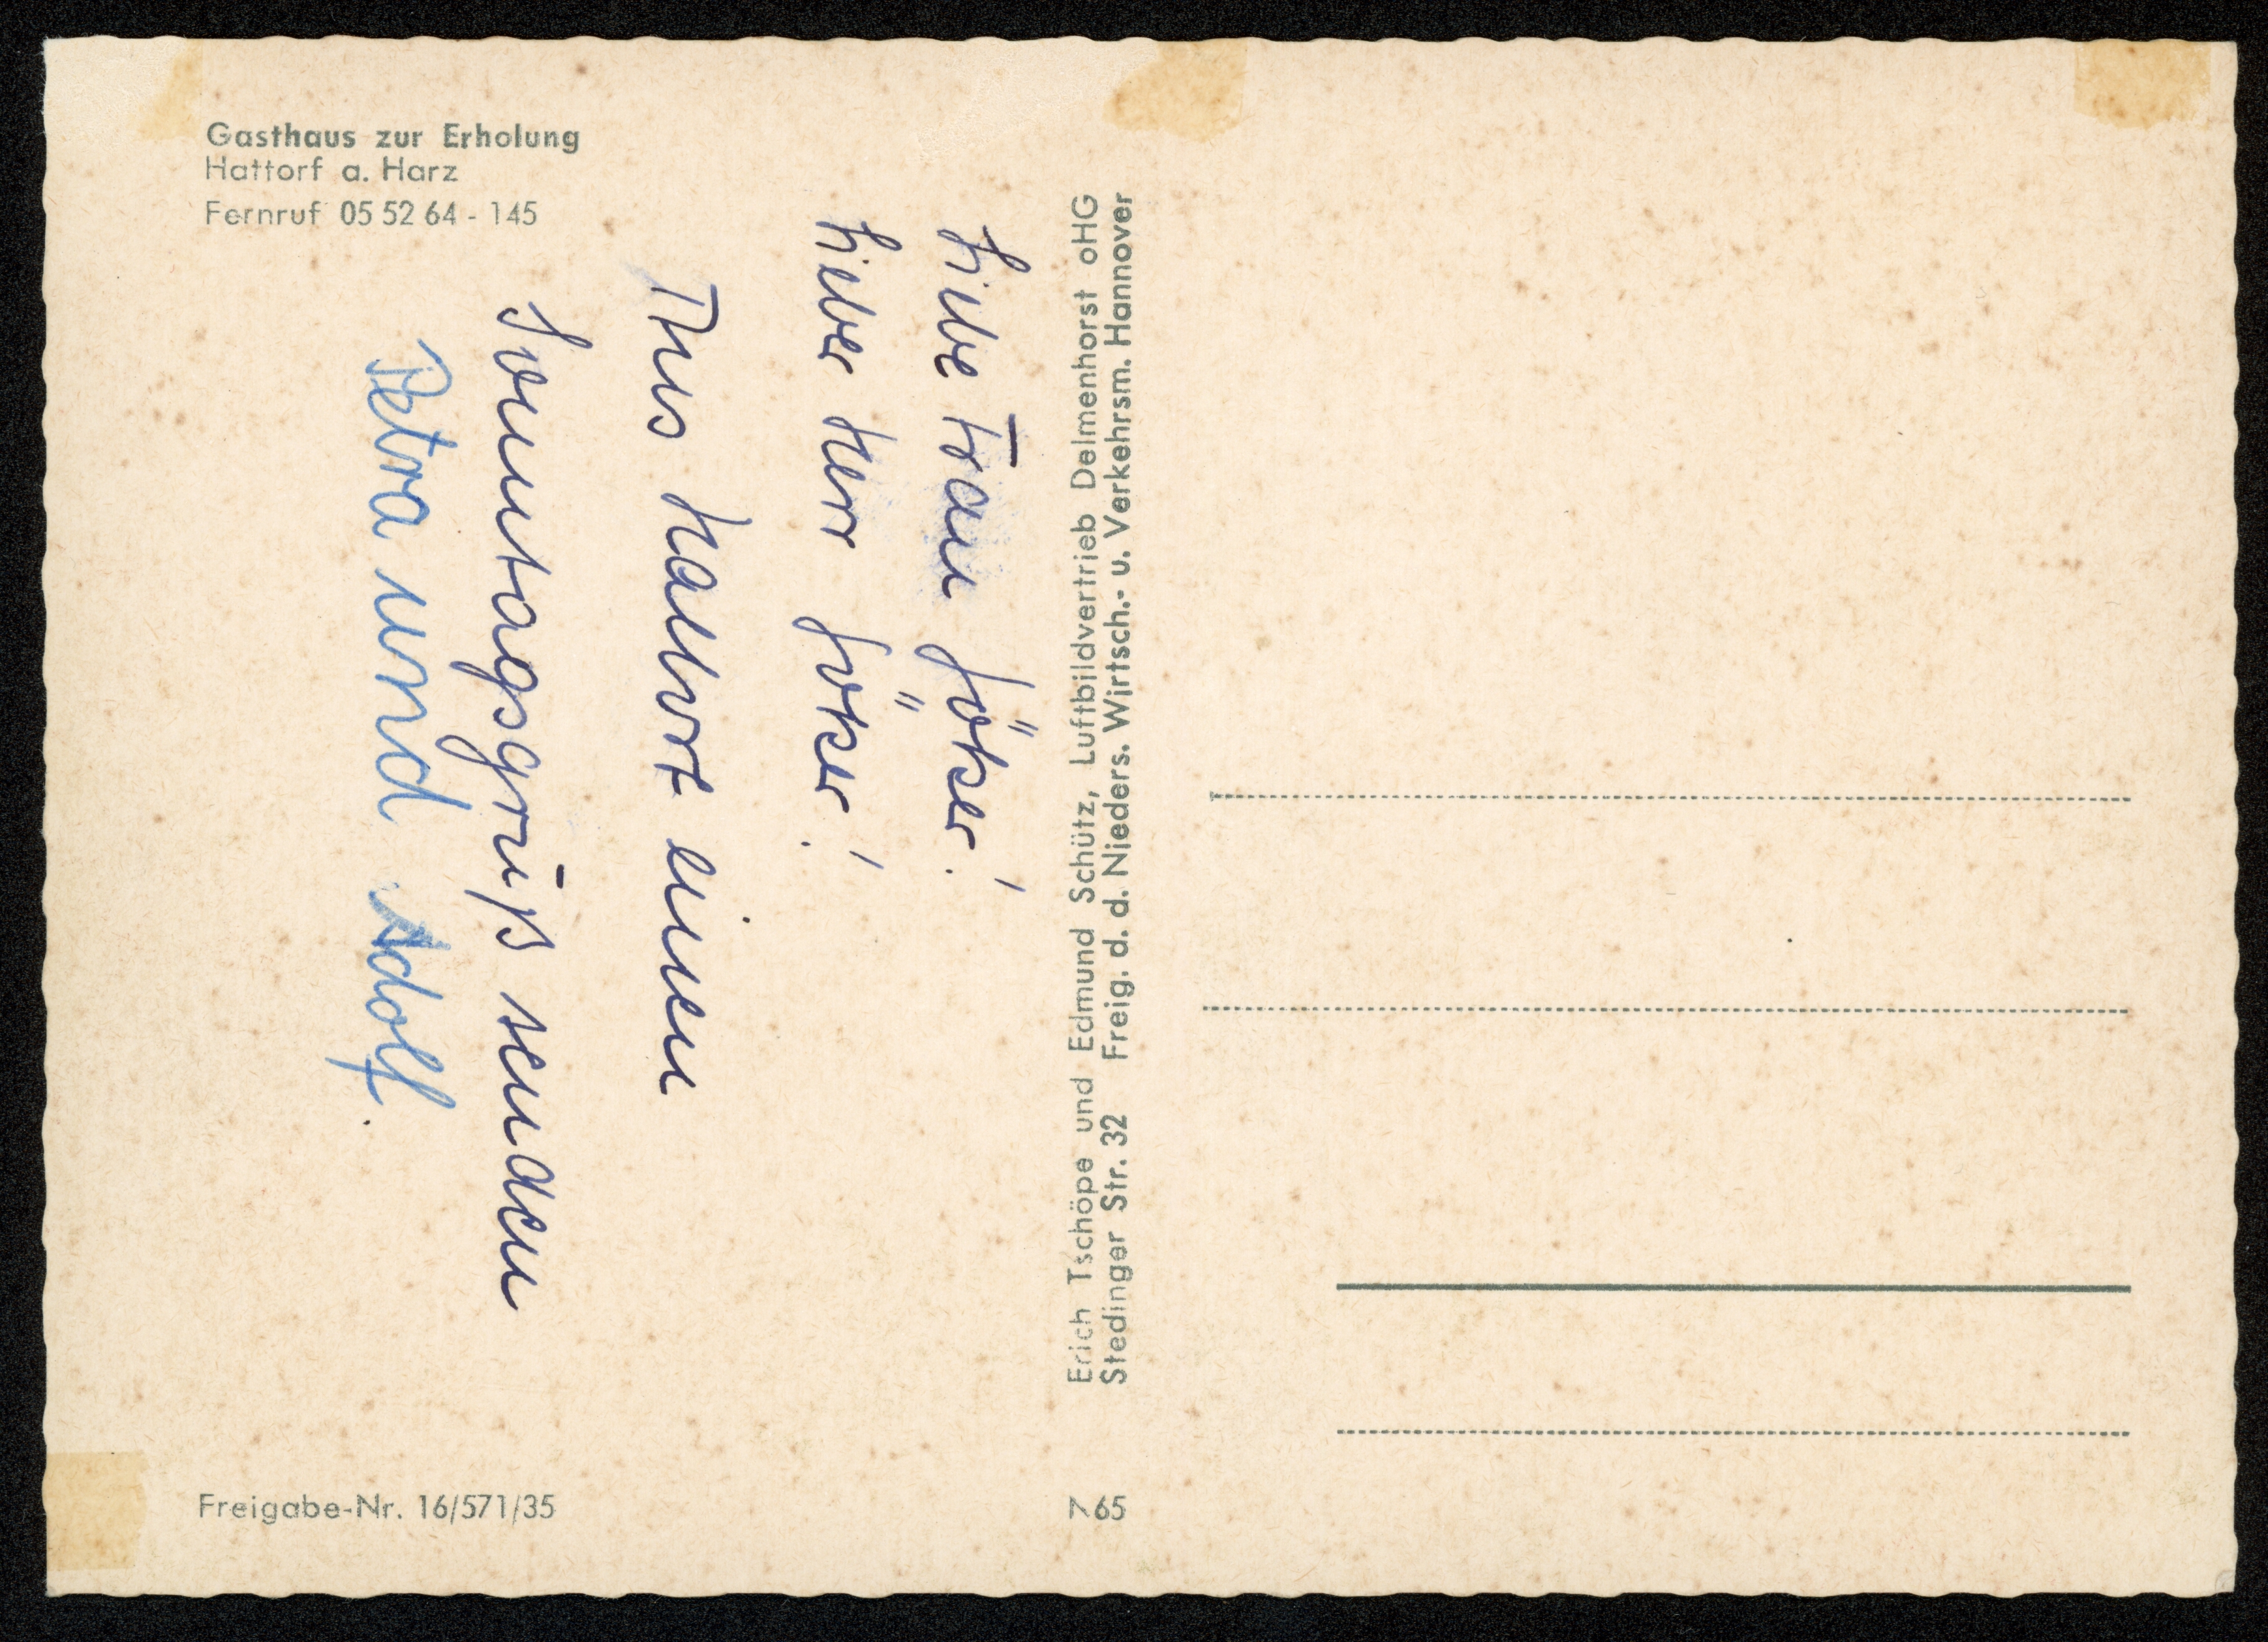 Gasthaus zur Erholung
Hattorf a. Harz
Fernruf 05 52 64 - 145
Liebe Frau Jöker!
Lieber Herr Jöker!
Aus Hattorf einen
Sonntagsgruß senden
Petra und Adolf.
Erich Tschöpe und Edmund Schütz, Luftbildvertrieb Delmenhorst oHG
Stedinger Str. 32 Freig. d. d. Nieders. Wirtsch.- u. Verkehrsm. Hannover
Freigabe-Nr. 16/571/35
7 65